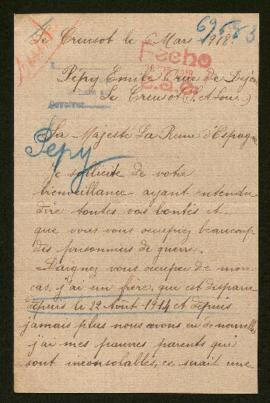 69553
Le Creusot le 6 Mars 1918
Fecho
Pépry Emile rue de Dijon
Le Creusot (S. et Loire)
Devolver
Sa Majesté La Reine d'Espagne
Pépy
Je sollicite de votre
bienveillance ayant entendu
dire toutes vos bontés et
que vous vous occupiez beaucoup
des prisonniers de guerre.
Daignez vous occuper de mon
cas, j'ai un frère qui est disparu
depuis le 22 Août 1914 et depuis
jamais plus nous avons eu de nouvelles
j'ai mes pauvres parents qui
sont inconsolables, ce serait une